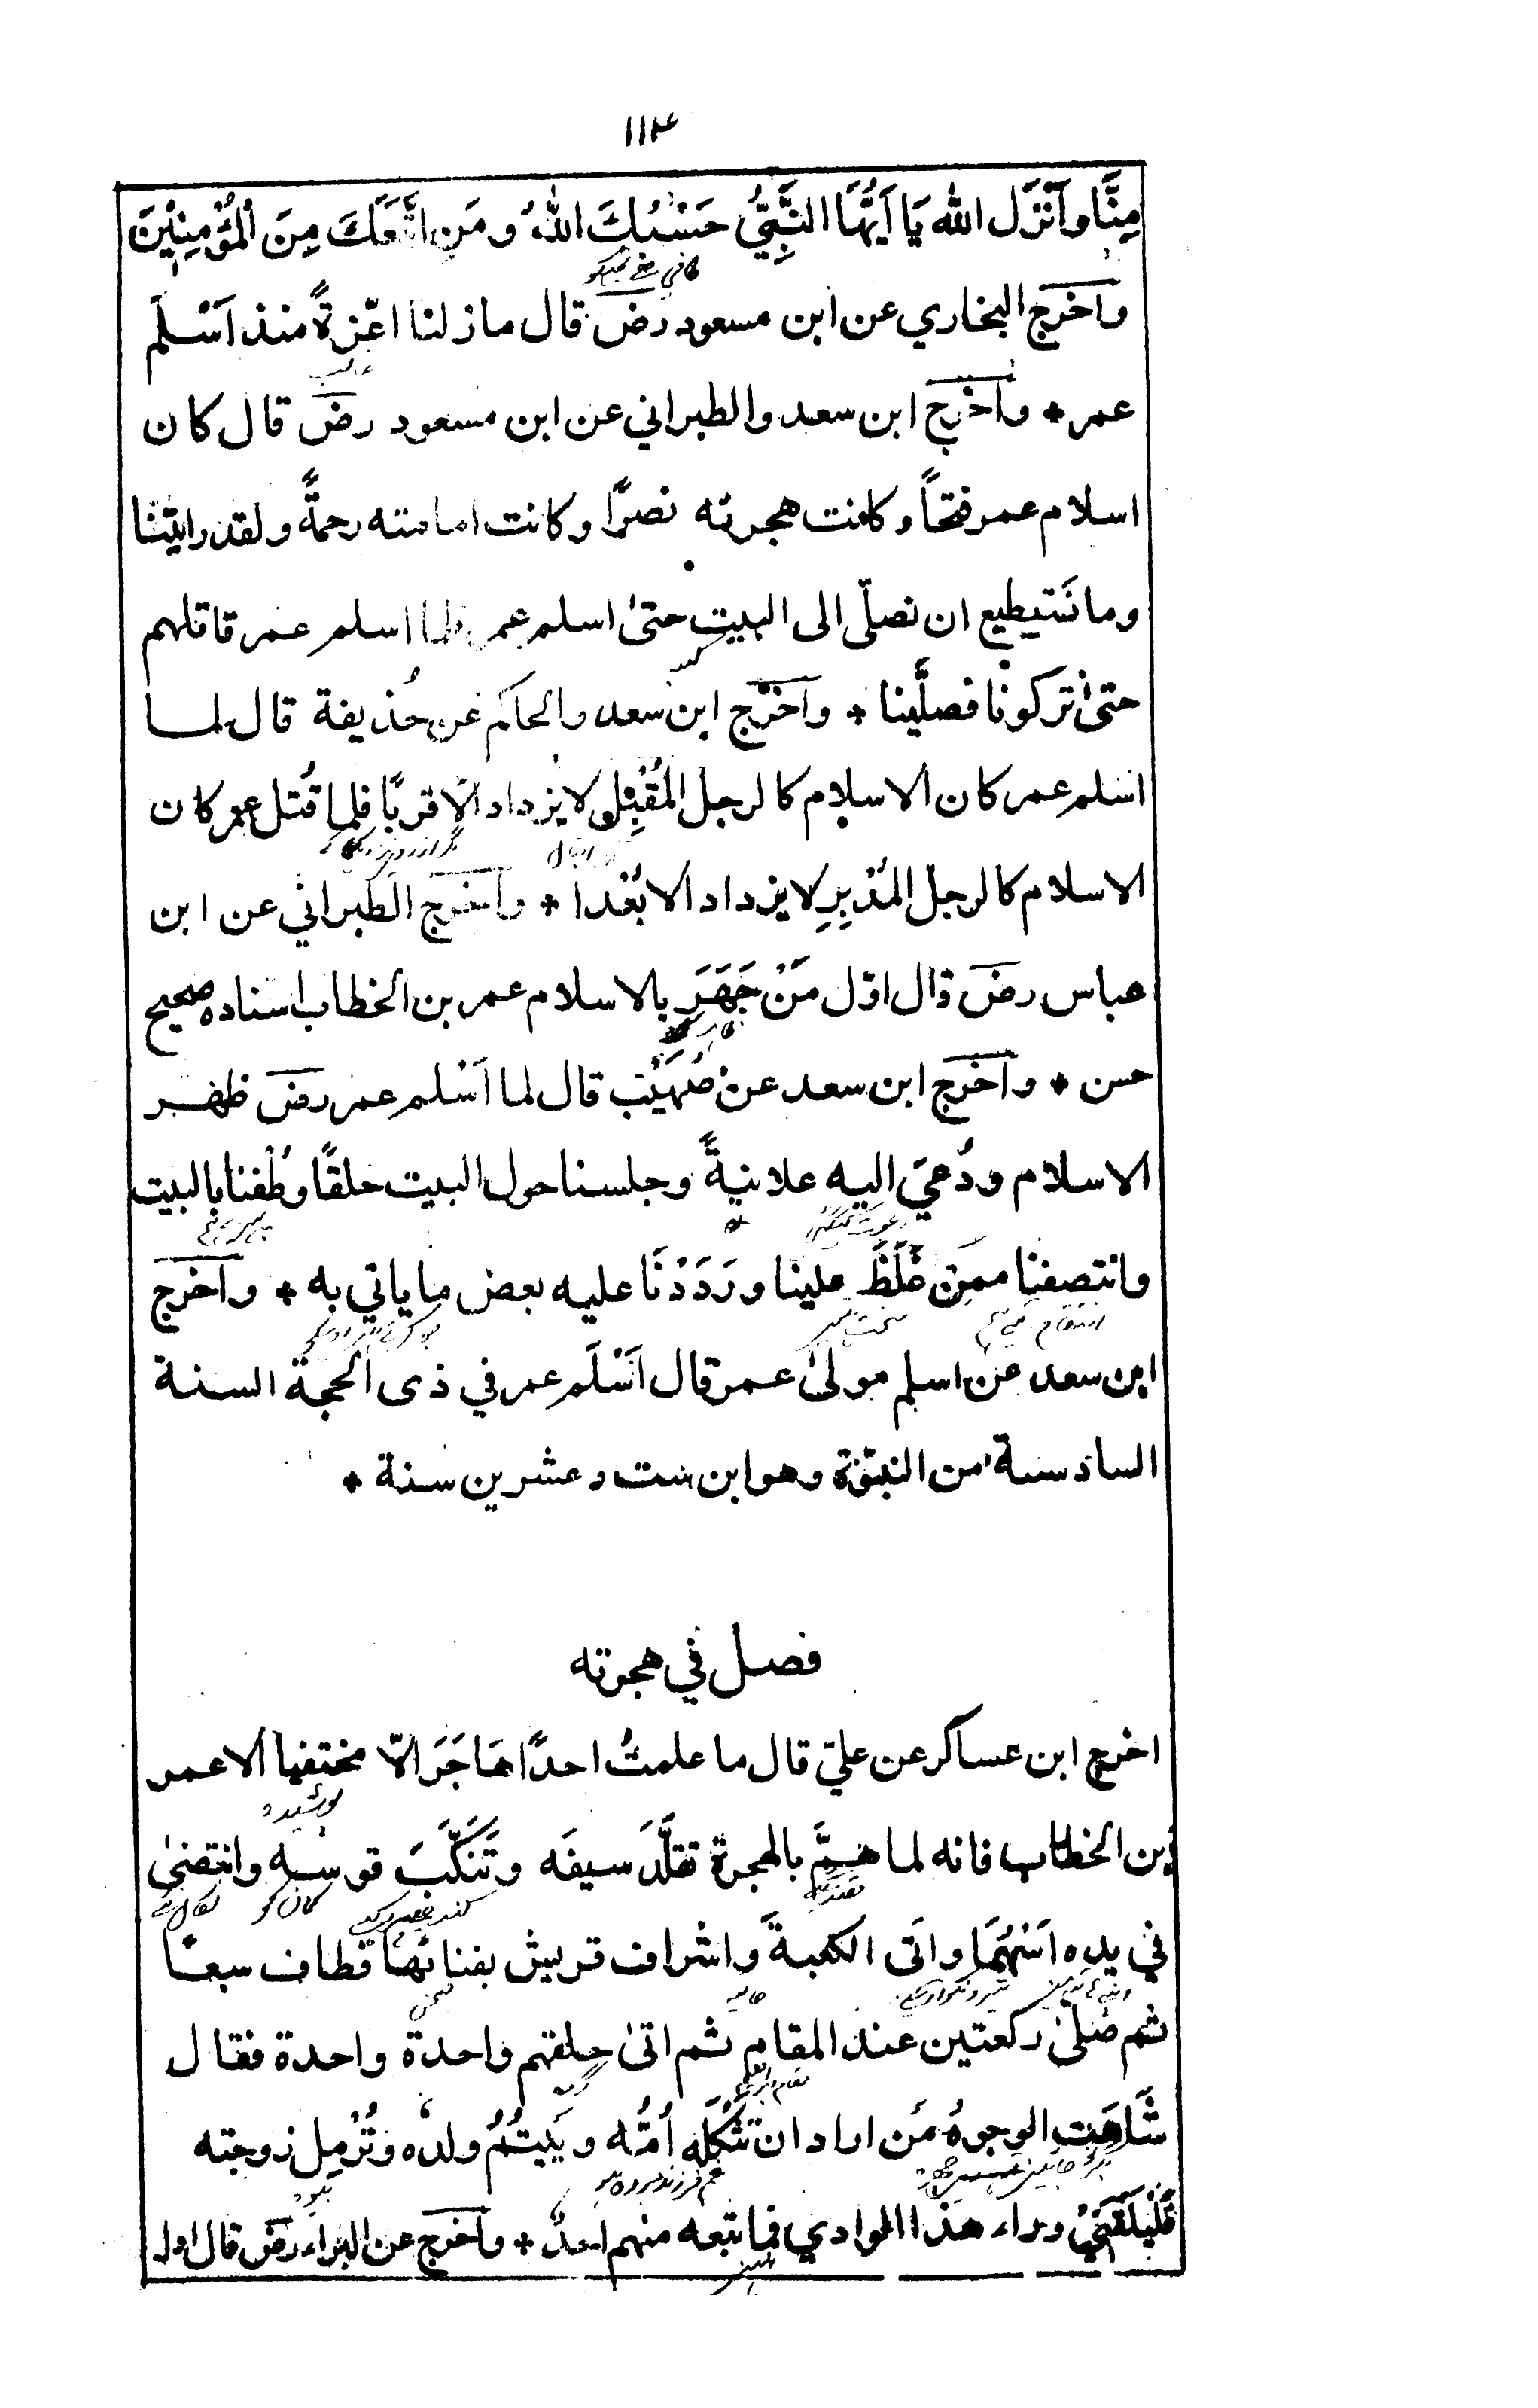 ١١٤
مِنَّا وأَنْزَل الله يَا اَيُّهَا النَّبِيُّ حَسْبُكَ اللهُ ومَنِ اتَّبَعَكَ مِنَ الْمُؤْمِنِيْنَ
وأخرج البخاري عن ابن مسعود رض قال ما زلنا اعّزةً منذ اَسْلَمَ
عمر * وأخرج ابن سعد والطبراني عن ابن مسعود رض قال كان
اسلام عمر فتحاً وكانت هجرته نصرًا وكانت امامته رحمةً ولقد رايتنا
وما نَستيطيع ان نصلّى الى البيت حتىٰ اسلم عمر فلما اسلم عمر قاتلهم
حتىٰ تركونا فصلّينا * وأخرج ابن سعد والحاكم عن حُذيفة قال لما
اسلم عمر كان الاسلام كالرجل المُقْبِل لا يزداد الّا قربًا فلما قُتل عمر كان
الاسلام كالرجل المُدْبِرِ لا يزداد الا بُعْدا * وأخرج الطبراني عن ابن
عباس رض قال اوّل مَنْ جَهَرَ بالاسلام عمر بن الخطاب اسناده صحيح
حسن * وأخرج ابن سعد عن صُهَيْب قال لما اَسْلم عمر رض ظهر
الاسلام ودُعيَ اليه علانيةً وجلسنا حول البيت حلقًا وطُفنا بالبيت
وانتصفنا ممن غَلَظَ علينا ورَدَدْنَا عليه بعض ما ياتي به * وأخرج
ابن سعد عن اسلم مولىٰ عمر قال اَسْلَم عمر في ذى الحجة السنة
السادسة من النبوّة وهو ابن ست وعشرين سنة *
فصل في هجرته
اخرج ابن عساكر عن عليّ قال ما علمتُ احدًا هَاجَرَ الّا مختفيا الا عمر
بوشيده
بن الخطاب فانه لما هَمَّ بالهجرة تقلَّدَ سيفَه وتَنَكَّبَ قوسَه وانتضىٰ
في يده اَسْهُمًا واَتى الكعبةَ واشراف قريش بفنائها فطاف سبعًا
ثم صلىٰ ركعتين عند المقام ثم اتىٰ حلقهم واحدة واحدة فقال
شَاهَتِ الوجوهُ مَن اراد ان تَثْكُلَه اُمُّه ويَيتُمُ ولدُه وتُرْمِل زوجته
فَلْيَلْقَنِيْ وراء هذا الوادي فما تبعه منهم احدٌ * وأخرج عن البراء رض قال اول